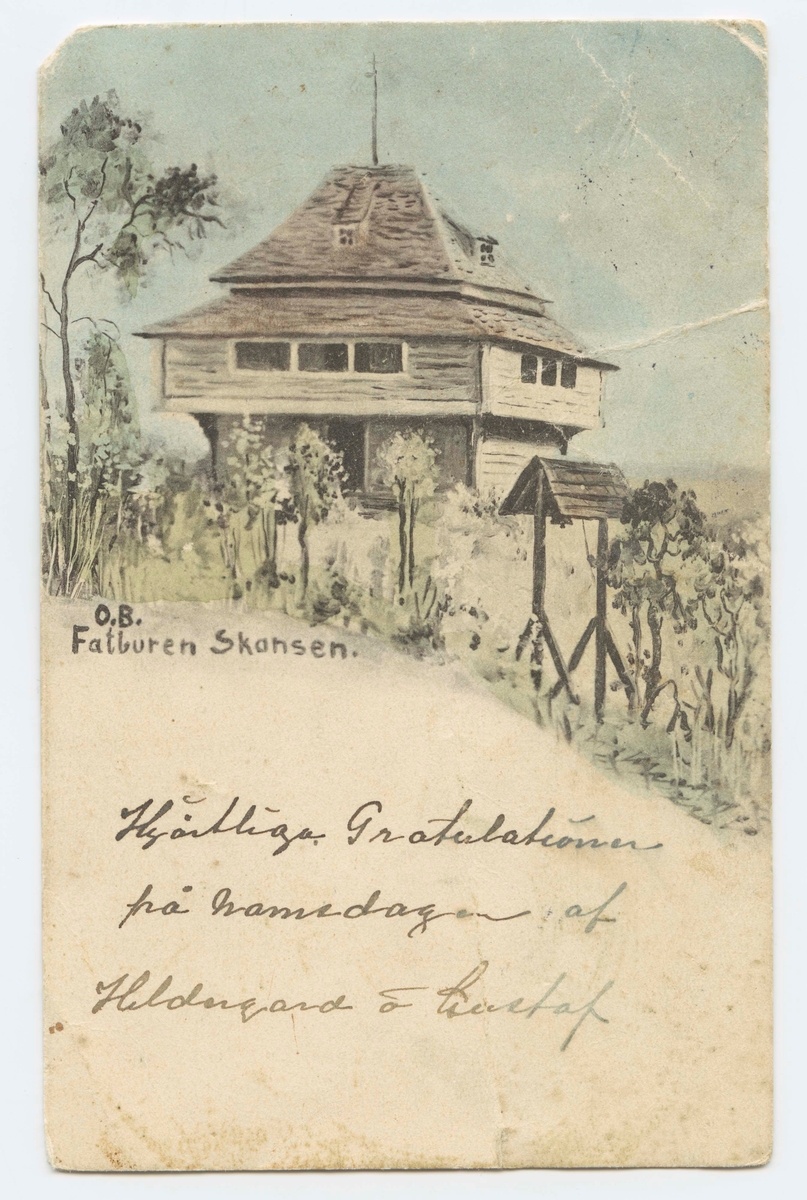 O.B.
Fatburen Skansen.
Hjärtliga Gratulationer
på namsdagen af
Hildergard o Gustaf